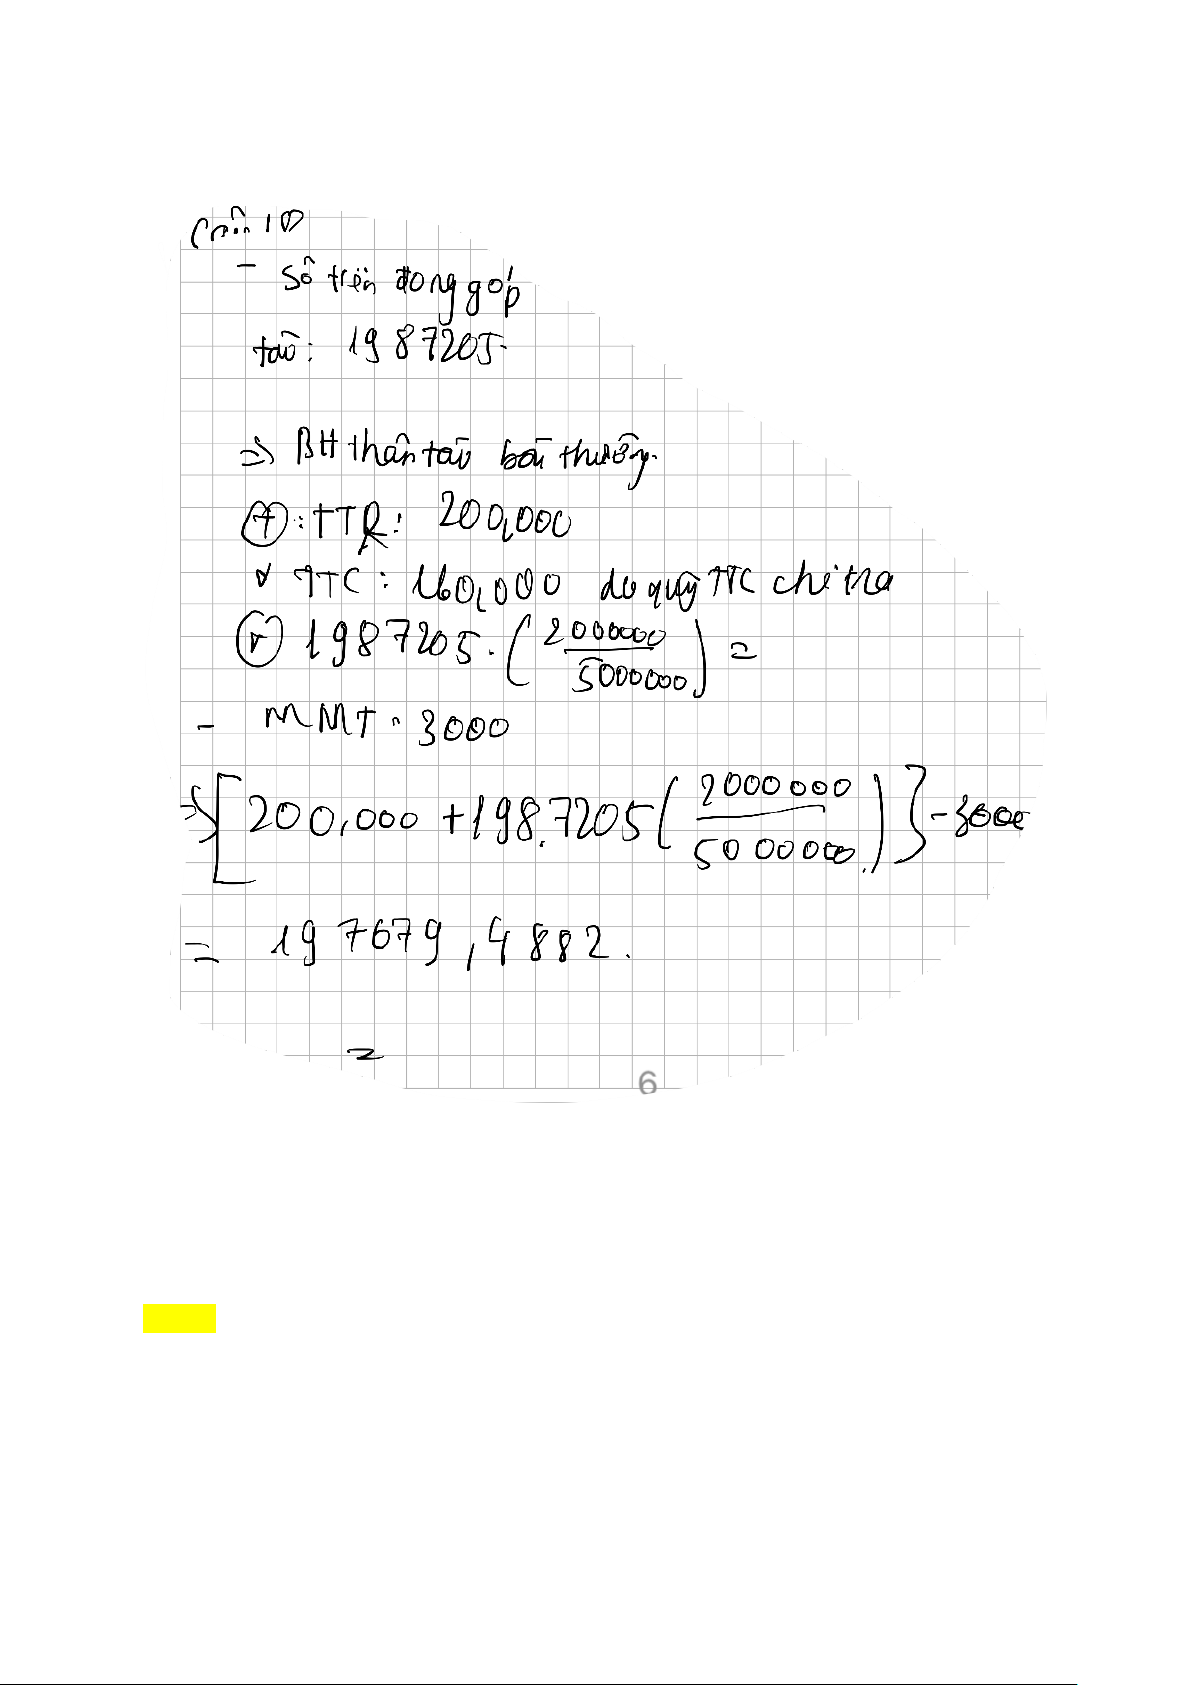 Câu 10
- Số tiền đóng góp
tàu: 1987205.
⇒ BH thân tàu bồi thường.
+ : TTR: 200,000
v TTC: 160,000 do quỹ TTC chi trả
+ 1987205. (2000000/5000000) =
- MMT. 3000
⇒ [200,000 + 198.7205 (2000000/5000000)] - 3000
= 197679,4882.
=
6